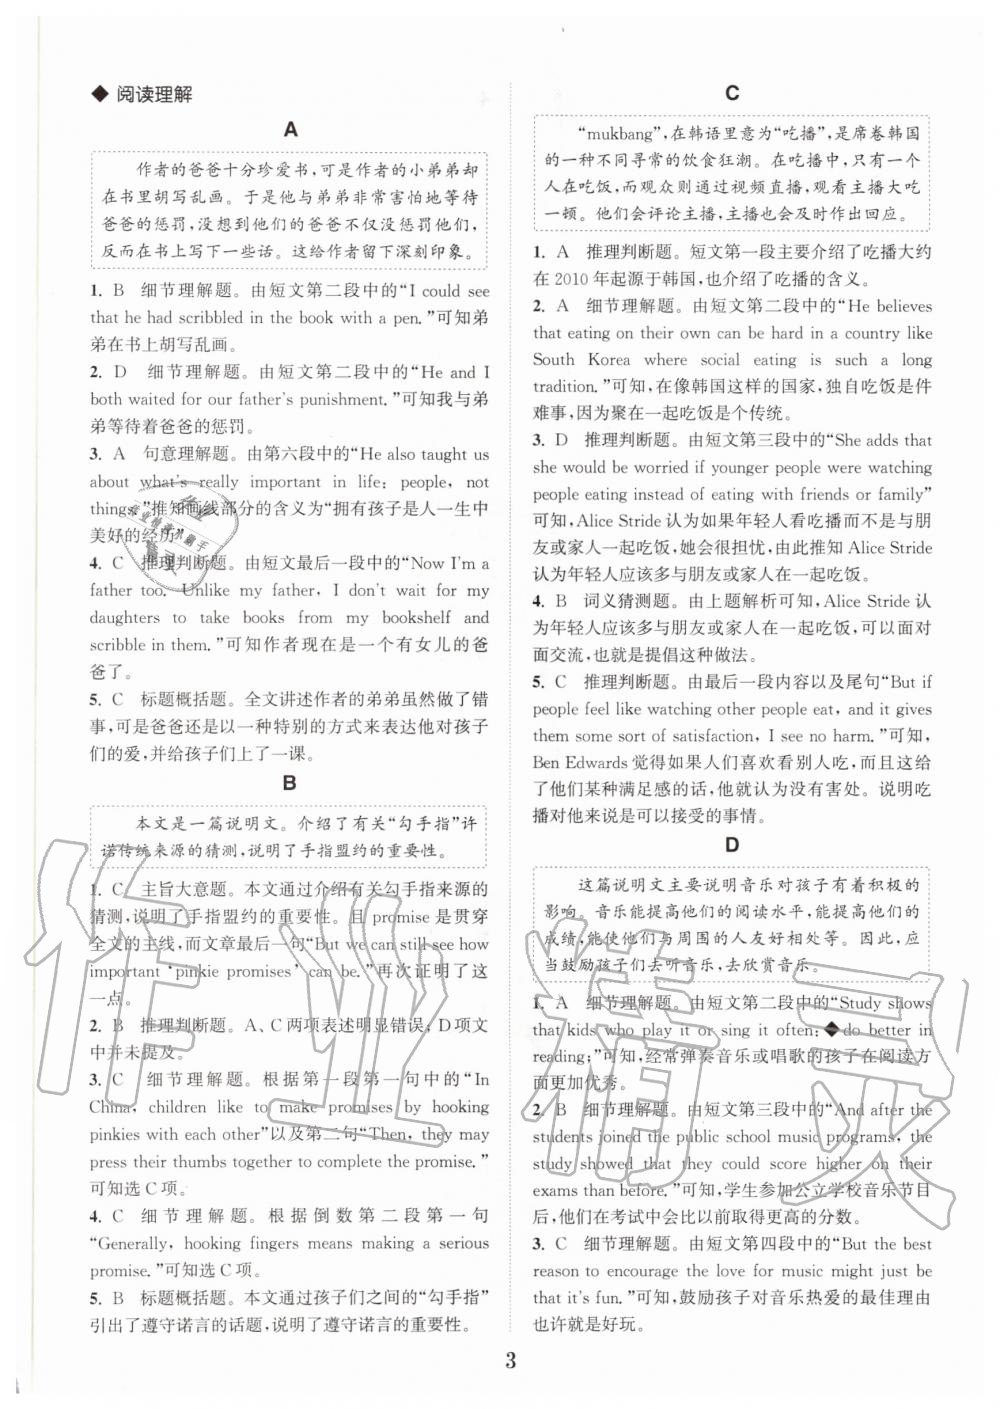 ◆ 阅读理解
A
作者的爸爸十分珍爱书,可是作者的小弟弟却
在书里胡写乱画。于是他与弟弟非常害怕地等待
爸爸的惩罚,没想到他们的爸爸不仅没惩罚他们,
反而在书上写下一些话。这给作者留下深刻印象。
1. B 细节理解题。由短文第二段中的“I could see
that he had scribbled in the book with a pen.”可知弟
弟在书上胡写乱画。
2. D 细节理解题。由短文第二段中的“He and I
both waited for our father's punishment.”可知我与弟
弟等待着爸爸的惩罚。
3. A 句意理解题。由第六段中的“He also taught us
about what's really important in life: people, not
things.”推知画线部分的含义为“拥有孩子是人一生中
美好的经历”。
4. C 推理判断题。由短文最后一段中的“Now I'm a
father too. Unlike my father, I don't wait for my
daughters to take books from my bookshelf and
scribble in them.”可知作者现在是一个有女儿的爸
爸了。
5. C 标题概括题。全文讲述作者的弟弟虽然做了错
事,可是爸爸还是以一种特别的方式来表达他对孩子
们的爱,并给孩子们上了一课。
B
本文是一篇说明文。介绍了有关“勾手指”许
诺传统来源的猜测,说明了手指盟约的重要性。
1. C 主旨大意题。本文通过介绍有关勾手指来源的
猜测,说明了手指盟约的重要性。且 promise 是贯穿
全文的主线,而文章最后一句“But we can still see how
important ‘pinkie promises’ can be.”再次证明了这
一点。
2. B 推理判断题。A、C两项表述明显错误;D项文
中并未提及。
3. C 细节理解题。根据第一段第一句中的“In
China, children like to make promises by hooking
pinkies with each other”以及第二句“Then, they may
press their thumbs together to complete the promise.”
可知选C项。
4. C 细节理解题。根据倒数第二段第一句
“Generally, hooking fingers means making a serious
promise.”可知选C项。
5. B 标题概括题。本文通过孩子们之间的“勾手指”
引出了遵守诺言的话题,说明了遵守诺言的重要性。
C
“mukbang”,在韩语里意为“吃播”,是席卷韩国
的一种不同寻常的饮食狂潮。在吃播中,只有一个人
在吃饭,而观众则通过视频直播,观看主播大吃
一顿。他们会评论主播,主播也会及时作出回应。
1. A 推理判断题。短文第一段主要介绍了吃播大约
在 2010 年起源于韩国,也介绍了吃播的含义。
2. A 细节理解题。由短文第二段中的“He believes
that eating on their own can be hard in a country like
South Korea where social eating is such a long
tradition.”可知,在像韩国这样的国家,独自吃饭是件
难事,因为聚在一起吃饭是个传统。
3. D 推理判断题。由短文第三段中的“She adds that
she would be worried if younger people were watching
people eating instead of eating with friends or family”
可知,Alice Stride 认为如果年轻人看吃播而不是与朋
友或家人一起吃饭,她会很担忧,由此推知 Alice Stride
认为年轻人应该多与朋友或家人在一起吃饭。
4. B 词义猜测题。由上题解析可知,Alice Stride 认
为年轻人应该多与朋友或家人在一起吃饭,可以面对
面交流,也就是提倡这种做法。
5. C 推理判断题。由最后一段内容以及尾句“But if
people feel like watching other people eat, and it gives
them some sort of satisfaction, I see no harm.”可知,
Ben Edwards 觉得如果人们喜欢看别人吃,而且这给
了他们某种满足感的话,他就认为没有害处。说明吃
播对他来说是可以接受的事情。
D
这篇说明文主要说明音乐对孩子有着积极的
影响。音乐能提高他们的阅读水平,能提高他们的
成绩,能使他们与周围的人友好相处等。因此,应
当鼓励孩子们去听音乐,去欣赏音乐。
1. A 细节理解题。由短文第二段中的“Study shows
that kids who play it or sing it often: ◆do better in
reading;”可知,经常弹奏音乐或唱歌的孩子在阅读方
面更加优秀。
2. B 细节理解题。由短文第三段中的“And after the
students joined the public school music programs, the
study showed that they could score higher on their
exams than before.”可知,学生参加公立学校音乐节目
后,他们在考试中会比以前取得更高的分数。
3. C 细节理解题。由短文第四段中的“But the best
reason to encourage the love for music might just be
that it's fun.”可知,鼓励孩子对音乐热爱的最佳理由
也许就是好玩。
3
作业精灵